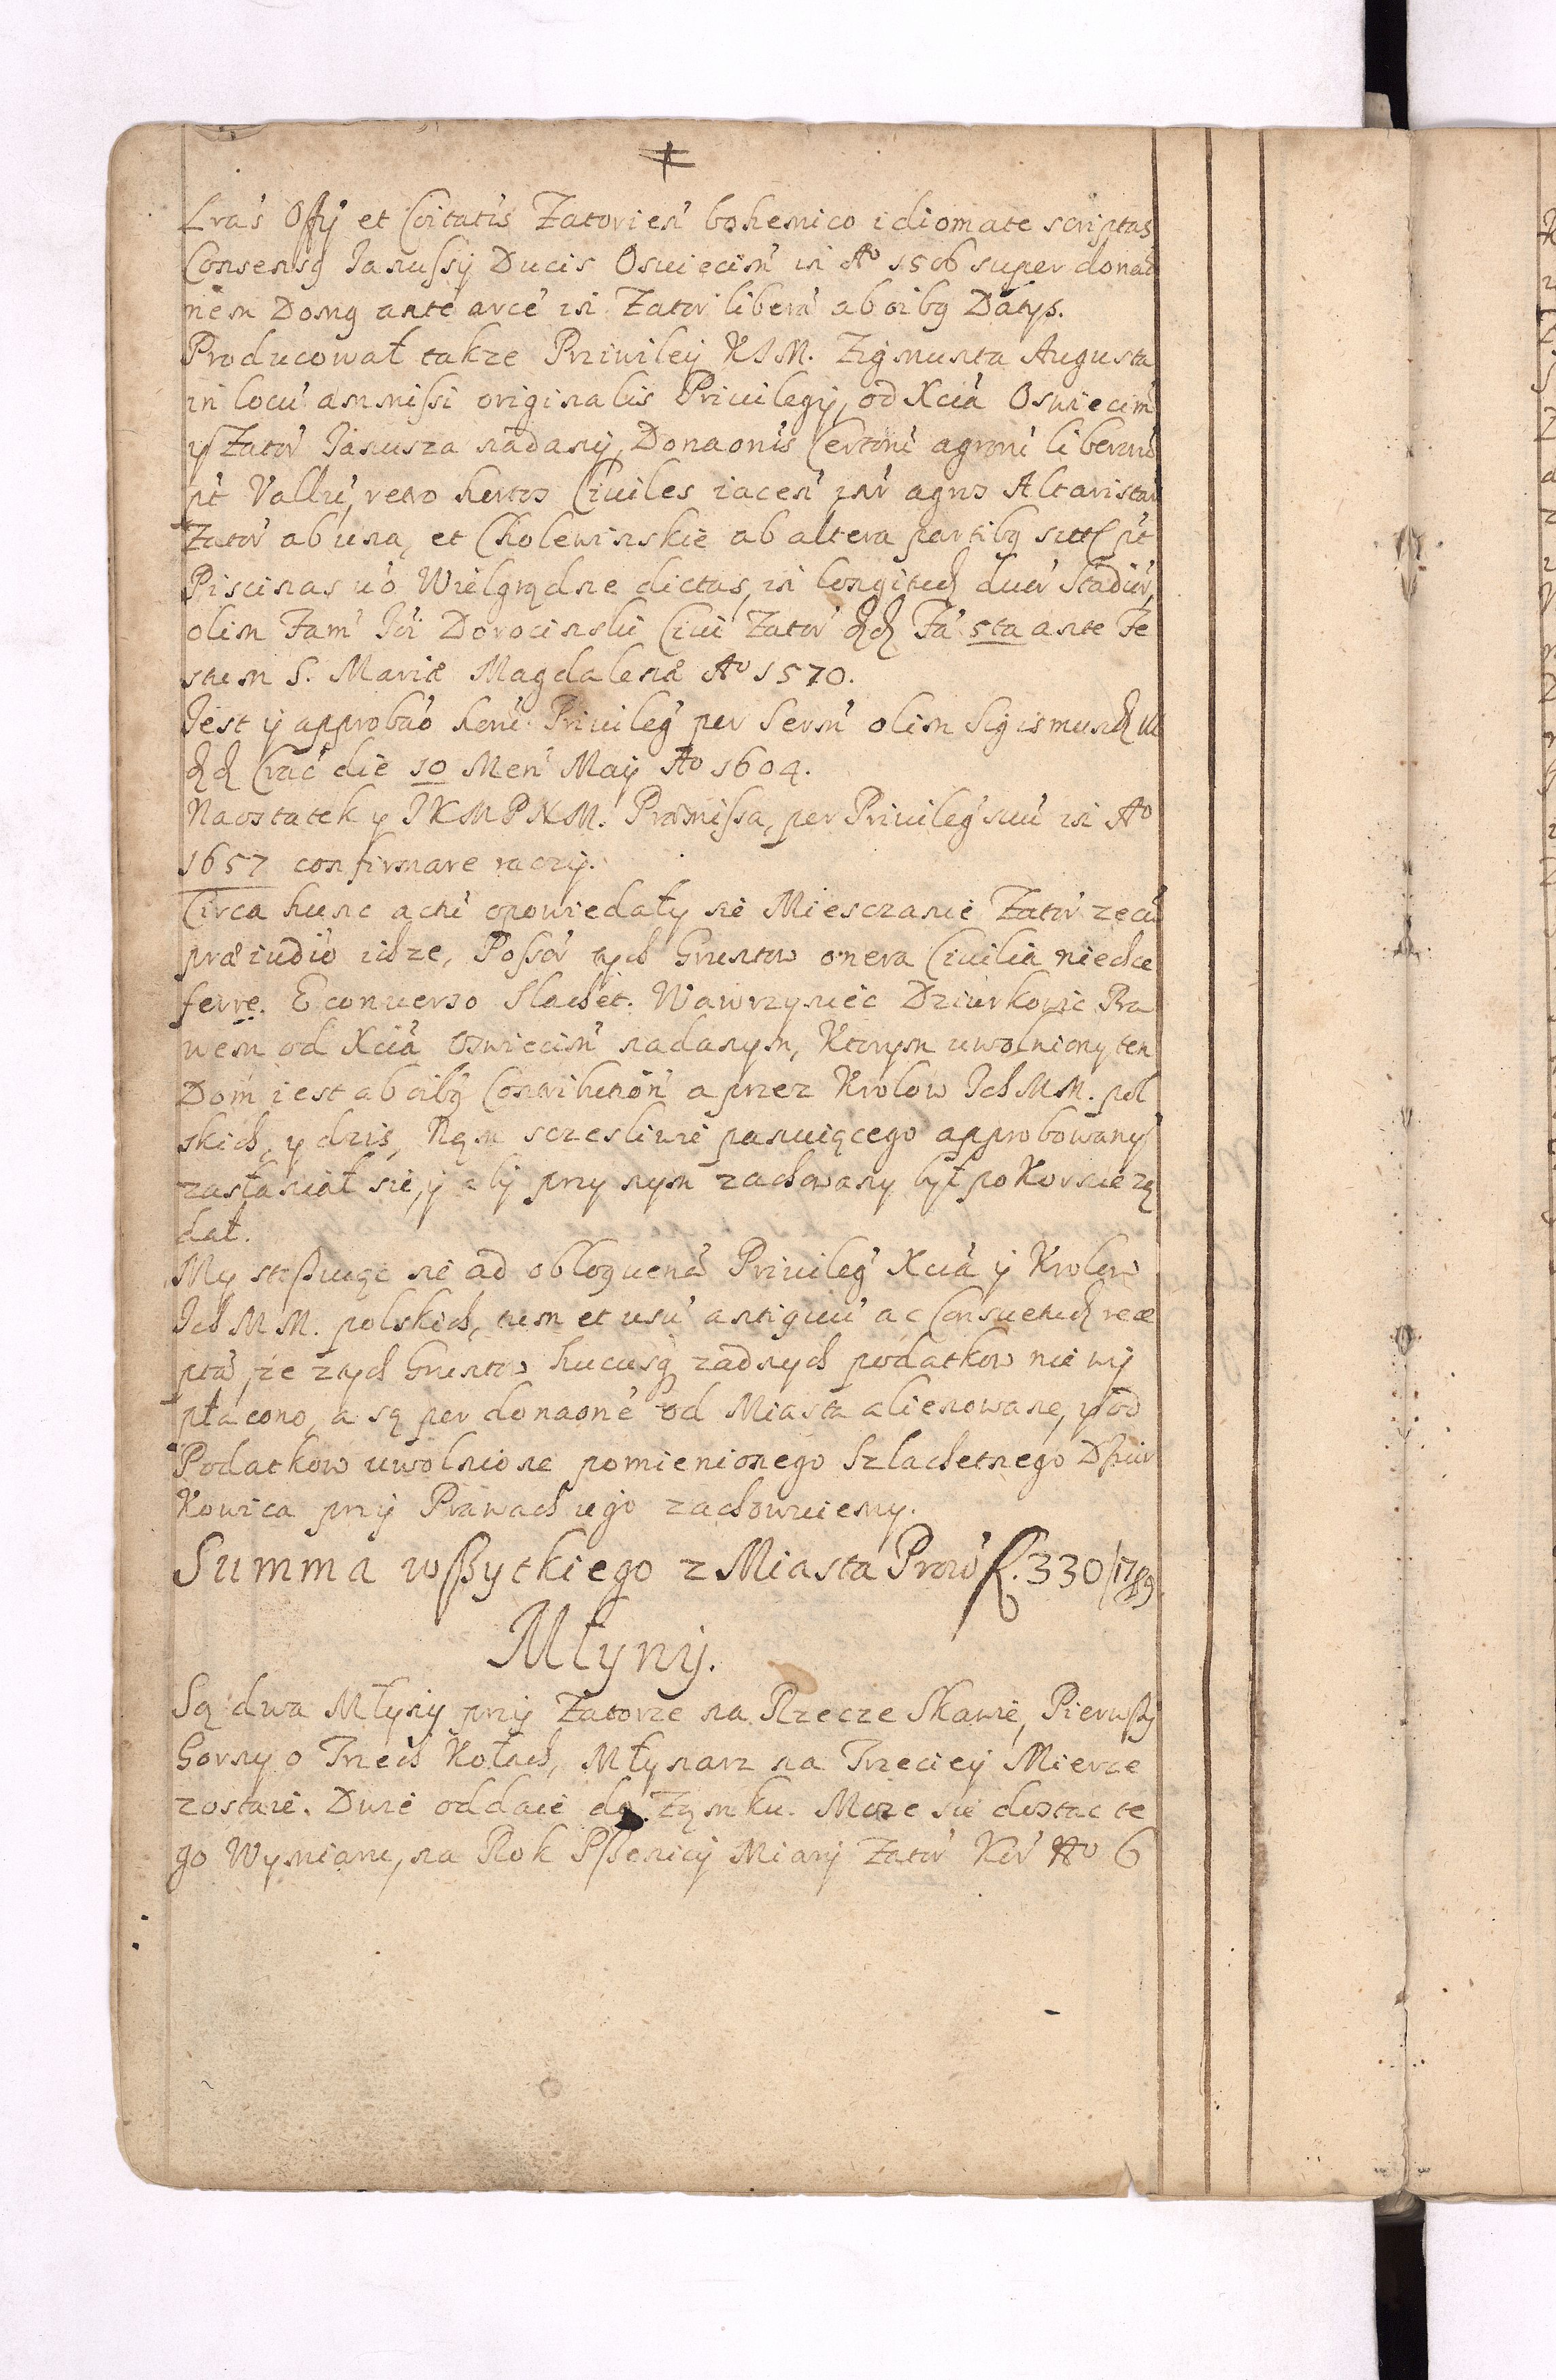 Lras Offy et Coitatis Zatorien bohemico idiomate scriptas
Consensq Janussy Ducis Oswiecim in Ao 1506 super donao
nem Domq ante arce in Zator libera ab oibq Datys.
Producował takze Priwiley KJM. Zigmunta Augusta
in locu ammissi originalis Privilegy, od Xcia Oswiecim
y Zator Janusza nadany, Donaonis Certoru agroru liberoru
pt Vallu, retro hortos Ciuiles iacen inr agros Altaristar
Zator ab una, et Cholewinskie ab altera partibq sitt pt
Piscinas uo Wielgrądne dictas, in longitud duor Stadior,
olim Fam Joi Dorocinski Ciui Zator dd Fa 5ta ante Fe
stum S. Mariæ Magdalenæ Ao 1570.
Jest y approbao horu Priuileg per Serm olim Sigismund III
dd Crac die 10 Men May Ao 1604.
Naostatek y JKMPNM. Præmissa, per Priuileg suu in Ao
1657 confirmare raczy.
Circa hunc actu opowiedały sie Miesczanie Zator ze cu
præiudio ich ze, Possor tych Gruntow onera Ciuilia niechce
ferre. E conuerso Slachet. Wawrzyniec Dziurkowic Pra
wem od Xcia Oswiecim nadanym, Ktorym uwolniony ten
Dom iest ab oibq Contributon a przez Krolow Ich MM. pol
skich, y dzis, Nąm sczesliwie panuiącego approbowany
zasłaniał sie, y aby przy nym zachowany był pokornie zą
dał.
My stosuiąc sie ad obloquena Priuileg Xcia y Krolow
Ich MM. polskich, tum et usu antiquu ac Consuetud rece
pta, ze z tych Gruntow hucusq zadnych podatkow nie wy
płacono, a są per donaone od Miasta alienowane, y od
Podatkow uwolnione pomienionego Szlachetnego Dziur
kowica przy Prawach iego zachowuiemy.
Summa wszytkiego z Miasta Prow f. 330/17/9
Młyny.
Są dwa Młyny przy Zatorze na Rzecze Skawie, Pierwszy
Gorny o Trzech Kołach, Młynarz na Trzeciey Mierze
zostaie. Dwie oddaie do Ząmku. Moze sie dostac te
go Wymiaru, na Rok Pszenicy Miary Zator Kor No 6